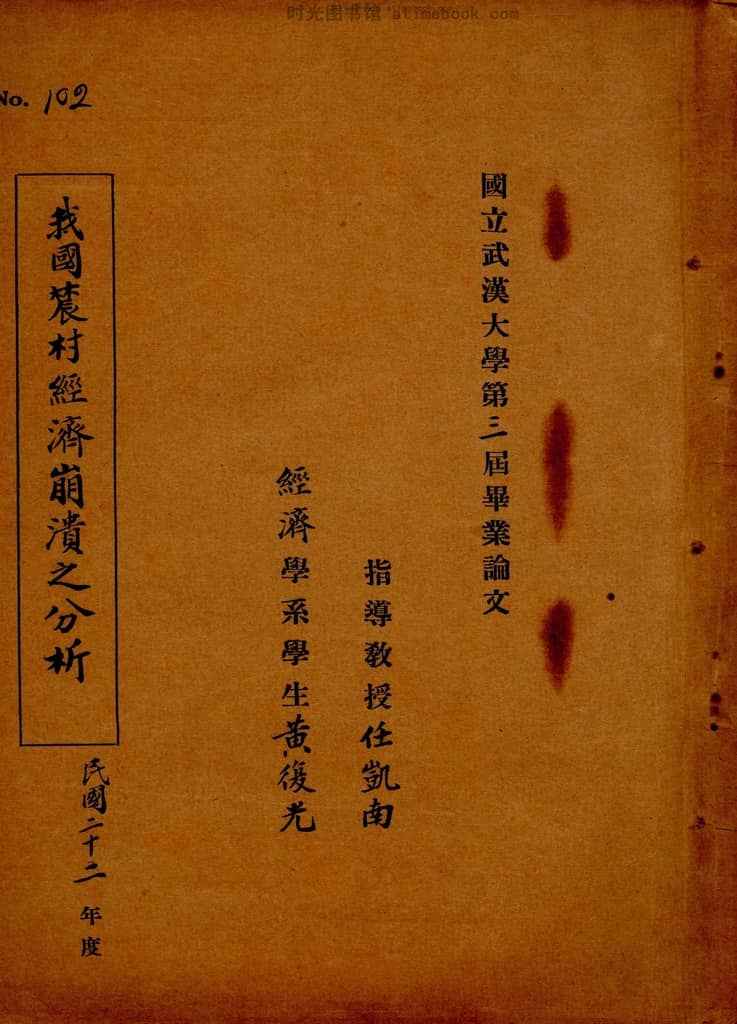 时光图书馆 atimebook.com
No. 102
國立武漢大學第三屆畢業論文
指導教授任凱南
經濟學系學生黃復光
我國農村經濟崩潰之分析
民國二十二年度